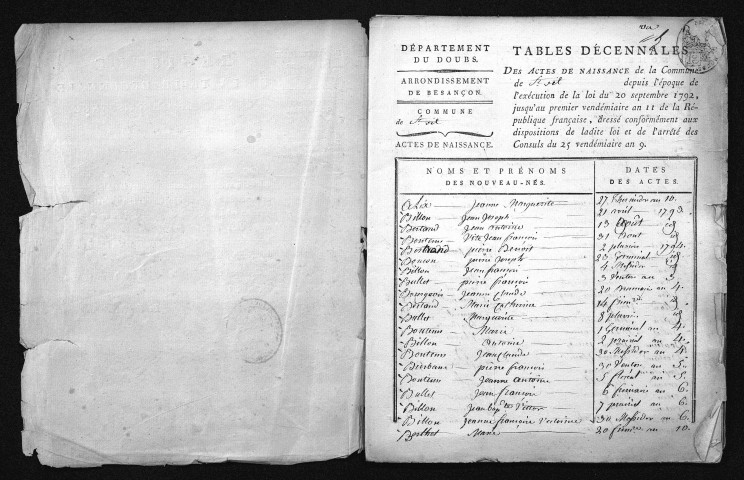 DÉPARTEMENT
DU DOUBS.
ARRONDISSEMENT
DE BESANÇON.
COMMUNE
de
ACTES DE NAISSANCE.
TABLES DÉCENNALES
DES ACTES DE NAISSANCE de la Commune
de depuis l'époque de
l'exécution de la loi du 20 septembre 1792,
jusqu'au premier vendémiaire an 11 de la Ré-
publique française, dressé conformément aux
dispositions de ladite loi et de l'arrêté des
Consuls du 25 vendémiaire an 9.
NOMS ET PRÉNOMS
DES NOUVEAU-NÉS.
DATES
DES ACTES.
Jeanne Marguerite 27 Thermidor an 10.
Billon Jean Joseph 21 avril 1793.
Bertand Jean antoine 13 Août id
Bouteus Vite Jean françois 31 id
Bertrand pierre Benoit 2 pluviose 1794.
pierre Joseph 25 Germinal id
Billon Jean françois 4 Messidor id
Bullet pierre françois 3 Ventose an 3.
Jeanne Claude 20 Brumaire an 4.
Bertand Marie Catherine 14 frimre id
Bullet Marguerite 8 pluvio. id
Bouteus Marie 1 Germinal an 4.
Billon Antoine 2 prairial an 4.
Bouteus Jean Claude 30 Messidor an 4.
pierre françois 30 Ventose an 5.
Bouteus Jeanne antoine 5 floréal an 5.
Bullet Jean françois 6 frimaire an 6.
Billon Jean Bapte Victor 7 prairial an 6.
Billon Jeanne françoise 30 Messidor an 6.
Berthet Marie 20 frimre an 10.